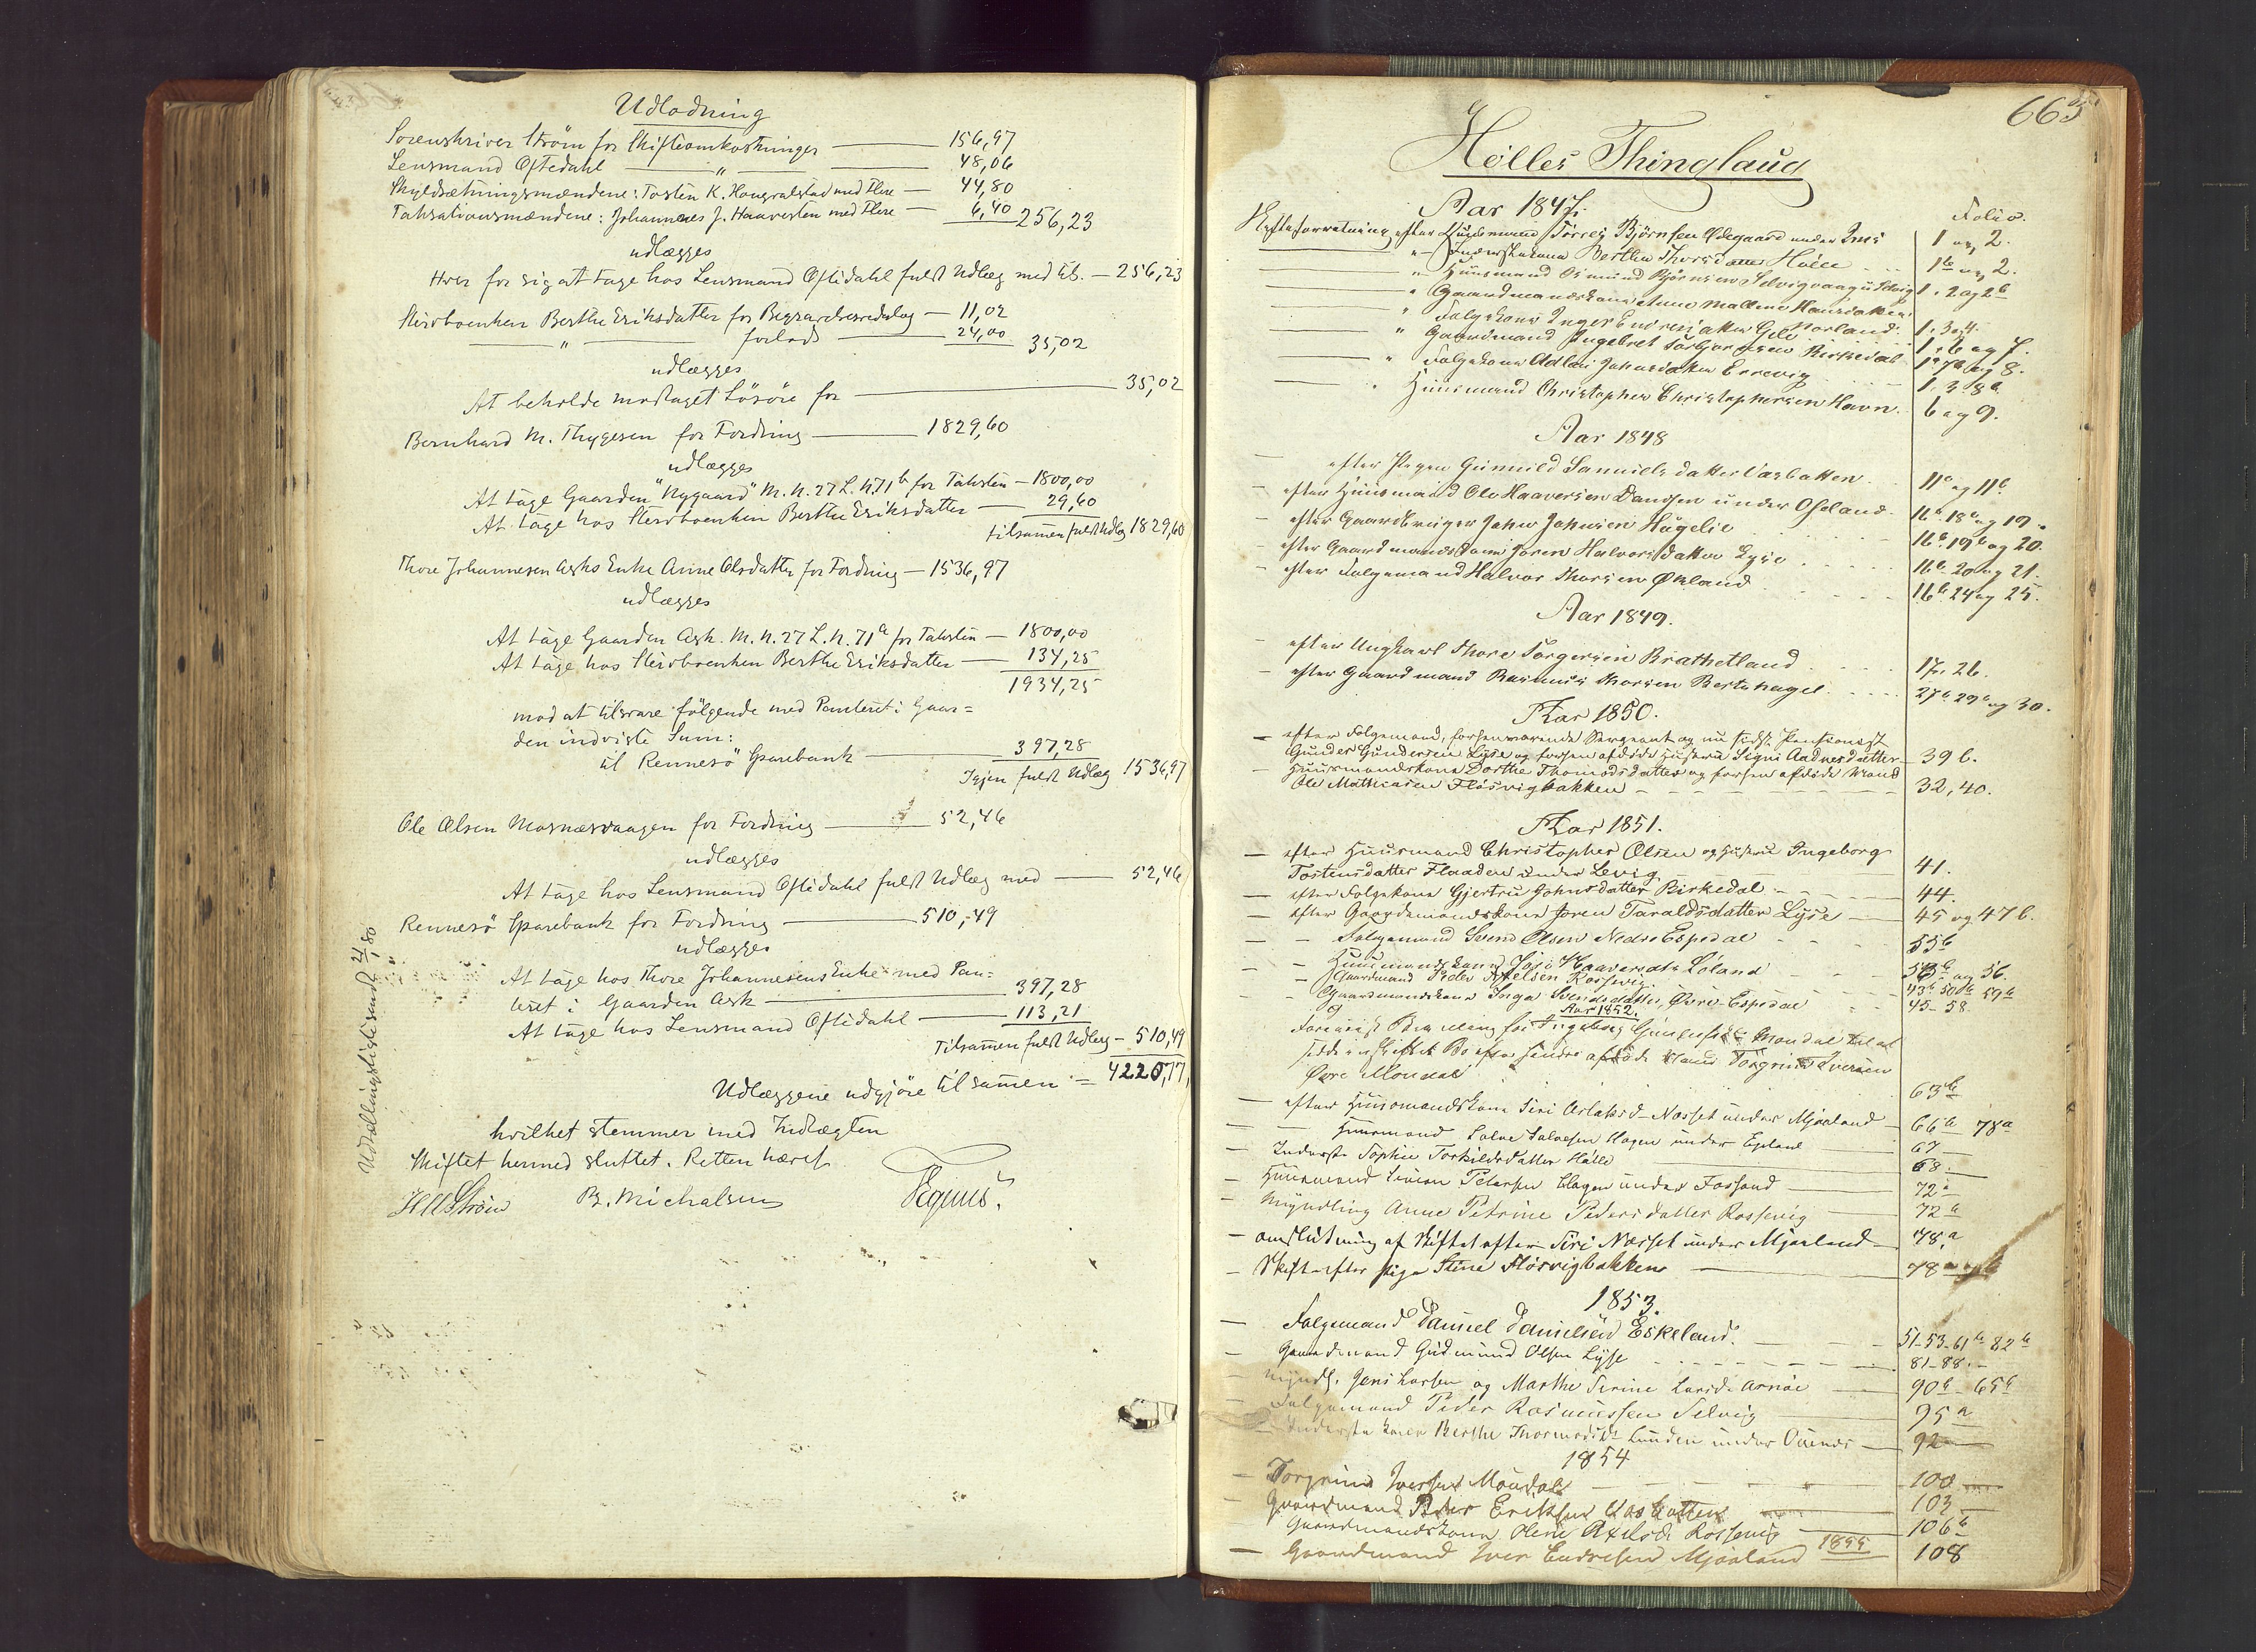 Udlodning
Sorenskriver Strøm for Skifteomkostninger — 156,97
Lensmand Oftedahl — " — 48,06
Skyldsætningsmændene: Tosten K. med Flere — 44,80
Taksationsmændene: Johannes J. Haavesten med Flere — 6,40 256,23
udlægges
Hver for sig at tage hos Lensmand Oftedahl fuldt Udlæg med tils. — 256,23
Stervboenken Berthe Eriksdatter for Begravelsesudlæg — 11,02
— " — forlods — 24,00 35,02
udlægges
At beholde modtaget Løsøre for — 35,02
Bernhard M. Thygesen for Fordring — 1829,60
udlægges
At tage Gaarden "Nygaard" M. N. 27 L. N. 71 b for Taksten — 1800,00
At tage hos Stervboenken Berthe Eriksdatter — 29,60
tilsamen fuldt Udlæg 1829,60
Thore Johannesen Asks Enke Anne Olsdatter for Fordring — 1536,97
udlægges
At tage Gaarden Ask. M. N. 27 L. N. 71 a for Taksten — 1800,00
At tage hos Stervboenken Berthe Eriksdatter — 134,25
1934,25
mod at tilsvare følgende med Panteret i Gaar=
den indviste Sum:
til Rennesø Sparebank — 397,28
Igjen fuldt Udlæg 1536,97
Ole Olsen Mosnæsvaagen for Fordring — 52,46
udlægges
At tage hos Lensmand Oftedahl fuldt Udlæg med — 52,46
Rennesø Sparebank for Fordring — 510,49
udlægges
At tage hos Thore Johannesens Enke med Pan=
teret i Gaarden Ask — 397,28
At tage hos Lensmand Oftedahl — 113,21
Tilsamen fuldt Udlæg — 510,49
Udlæggene udgjøre tilsamen = 4220,77
hvilket stemmer med Indtægten
Skiftet hermed sluttet. Retten hævet
Strøm B. Michalsen Vegnus.
665
Hølles Thinglaug
Aar 1847. Folio.
Skifteforretning efter Huusmand Torrey Bjørnsen Ødegaard under Ims 1 og 2.
" Inderstekona Berthe Thorsdatter Hølle 1b og 2.
" Huusmand Osmund Bjørnsen Selvigvaag u/Selvig 1. 2 og 2b
" Gaardmandskona Anne Malline Hansdatter Norland 1. 3 og 4.
" Folgekone Inger Endresdatter Geil 1. 6 og 7.
" Gaardmand Ingebret Torbjørnsen Birkedal 1. 7 og 8.
" Folgekona Adlau Jonasdatter Errevig 1. 3. 8a
" Huusmand Christopher Christophersen Havn 6 og 9.
Aar 1848
— efter Pigen Gunnild Samuelsdatter Vasbatten 11a og 11b
— efter Huusmand Ole Haaversen under Oseland 16b. 18b og 19.
— efter Gaardbruger John Johnsen Hagelie 16b. 19b og 20.
— efter Gaardmandskone Joren Halvorsdatter Lyse 16b. 20 og 21.
— efter Folgemand Halvor Thorsen Økland 16b. 24 og 25.
Aar 1849.
— efter Ungkarl Thore Torgersen Brathetland 17. 26.
— efter Gaardmand Rasmus Thorsen Bertnhagel 27b 29b og 30.
Aar 1850.
— efter Folgemand, forhenværende Sergeant og nu sidst Pensionist
Gunder Gundersen Lyse og forhen afdøde Hustrue Signi Aadnesdatter — 39 b.
— Huusmandskone Dorthe Thomasdatter og forhen afdøde Mand
Ole Mathiasen Fløsvigbakken — 32, 40.
Aar 1851.
— efter Huusmand Christopher Olsen og Hustrue Ingeborg
Tostensdatter Flaaden under Levig 41.
— efter Folgekone Gjertru Johnsdatter Birkedal 44.
— efter Gaardmandskone Joren Taraldsdatter Lyse — 45 og 47 b.
— — Folgemand Svend Olsen Nedre Espedal 55b
— — Huusmandskone Haaversdtr Løland 55b og 56
— Gaardmand Peder Axelsen Rossevig 43b 50b 59b
— Gaardmandskone Inga Svendsdatter, Øvre Espedal 45-58
Aar 1852.
Ingeborg Mondal til at
sidde i uskiftet Bo efter hendes afdøde Mand Torgrim Iversen
Øvre Mondal 63b
— efter Huusmandskone Siri Aslaksd. Nesset under Mjøland — 66b 78a
— Huusmand Salve Salvesen Hagen under Eggeland 67
— Inderst Sophie Torkildsdatter Hølle — 68.
— Huusmand Simon Petersen Hagen under Fossand — 72a
— Myndling Anne Petrine Pedersdatter Rossevig — 72b
— omslutning af Skiftet efter Siri Nesset under Mjøland — 78.a
— Skift efter Pige Stine Fløsvigbakken — 78
1853.
— Folgemand Daniel Danielsen Eskeland — 51-53-61b 82b
— Gaardmand Gudmund Olsen Lyse 81-88.
— Myndl. Jens Larsen og Marthe Serine Larsd. Arnøe — 90b - 65b
— Folgemand Peder Rasmussen Selvig 95a
— Inderste Kone Berthe Thormodsdtr Lunden under — 92
1854
— Torgrim Iversen Mondal — 100
— Gaardmand Peder Eriksen Vasbotten — 103
Gaardmandskone Olene Axelsd. Rossevig — 106b
— Gaardmand Iver Endresen Mjøland 1855 108